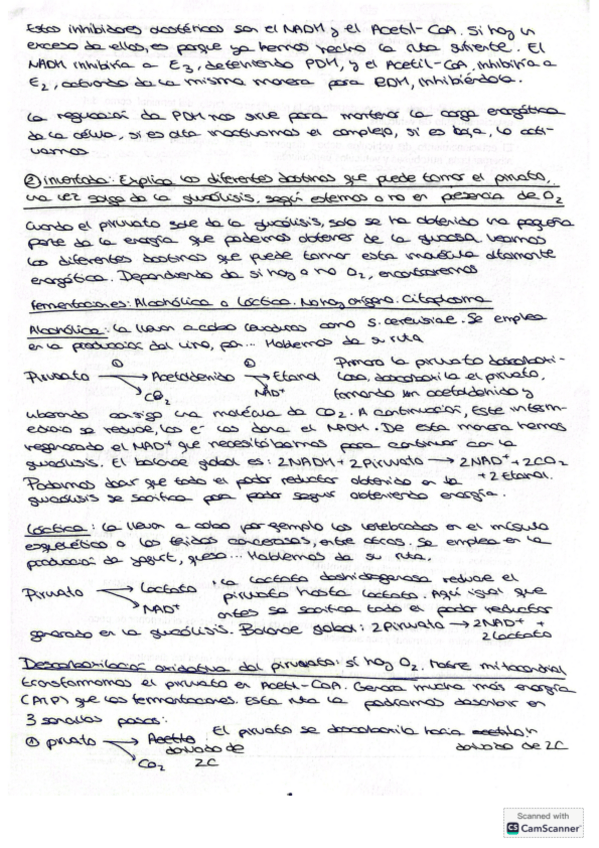 Estos inhibidores alostéricos son el NADH y el Acetil-CoA. Si hay un
exceso de ellos, es porque ya hemos hecho la ruta suficiente. El
NADH inhibiría a E3, deteniendo PDH, y el Acetil-CoA inhibiría a
E2, actuando de la misma manera para PDH, inhibiéndola.
La regulación de PDH nos sirve para mantener la carga energética
de la célula, si es alta inactivamos el complejo, si es baja, lo acti-
vamos
② inventada: Explica los diferentes destinos que puede tomar el piruvato,
una vez salga de la glucólisis, según estemos o no en presencia de O2
Cuando el piruvato sale de la glucólisis, solo se ha obtenido una pequeña
parte de la energía que podemos obtener de la glucosa. Veamos
los diferentes destinos que puede tomar esta molécula altamente
energética. Dependiendo de si hay o no O2, encontraremos
Fermentaciones: Alcohólica o láctica. No hay oxígeno. Citoplasma
Alcohólica: La llevan a cabo levaduras como S. cerevisiae. Se emplea
en la producción del vino, pan... Hablemos de su ruta
① ② Primero la piruvato descarboxi-
Piruvato → Acetaldehído → Etanol lasa, descarboxila el piruvato,
CO2 NAD+ formando un acetaldehído y
liberando consigo una molécula de CO2. A continuación, este interm-
edio se reduce, los e- los dona el NADH. De esta manera hemos
regenerado el NAD+ que necesitábamos para continuar con la
glucólisis. El balance global es: 2NADH + 2Piruvato → 2NAD+ + 2CO2
+ 2Etanol.
Podemos decir que todo el poder reductor obtenido en la
glucólisis se sacrifica para poder seguir obteniendo energía.
Láctica: La llevan a cabo por ejemplo los vertebrados en el músculo
esquelético o los tejidos cancerosos, entre otros. Se emplea en la
producción de yogurt, queso... Hablemos de su ruta.
Piruvato → Lactato, la lactato deshidrogenasa reduce el
NAD+ piruvato hasta lactato. Aquí igual que
antes se sacrifica todo el poder reductor
generado en la glucólisis. Balance global: 2Piruvato → 2NAD+ +
2Lactato
Descarboxilación oxidativa del piruvato: sí hay O2. Matriz mitocondrial
transformamos el piruvato en Acetil-CoA. Genera mucha más energía
(ATP) que las fermentaciones. Esta ruta la podríamos describir en
3 sencillos pasos:
① piruvato → derivado de 2C
CO2
El piruvato se descarboxila hacia un
derivado de 2C
Scanned with
CS CamScanner